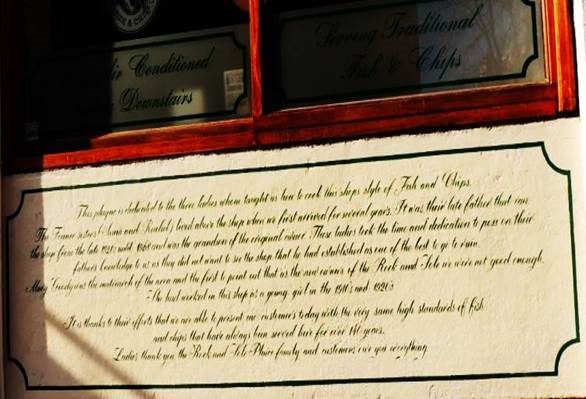 & Chips
Air Conditioned
Downstairs
Serving Traditional
Fish & Chips
This plaque is dedicated to the three ladies whom taught us how to cook this shops style of Fish and Chips.
The France sisters lived above the shop when we first arrived for several years. It was their late father that ran
the shop from the late 1920's until and was the grandson of the original owner. These ladies took the time and dedication to pass on their
fathers knowledge to us as they did not want to see the shop that he had established as one of the best go to ruin.
Mary was the matriarch of the area and the first to point out that as the new owners of the Rock and Sole we were not good enough.
She had worked in this shop as a young girl in the 1910's and 1920's
It is thanks to their efforts that we are able to present our customers today with the very same high standards of fish
and chips that have always been served here for over 140 years.
Ladies thank you, the Rock and Sole Plaice family and customers owe you everything.